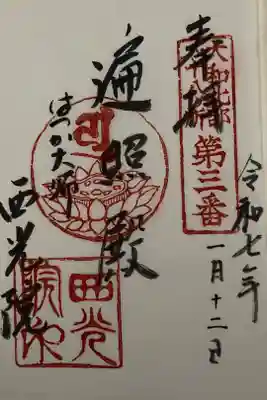 令和七年
一月十二日
奉拝
大和北部
第三番
遍照殿
はだか大師
西光院
西光院印